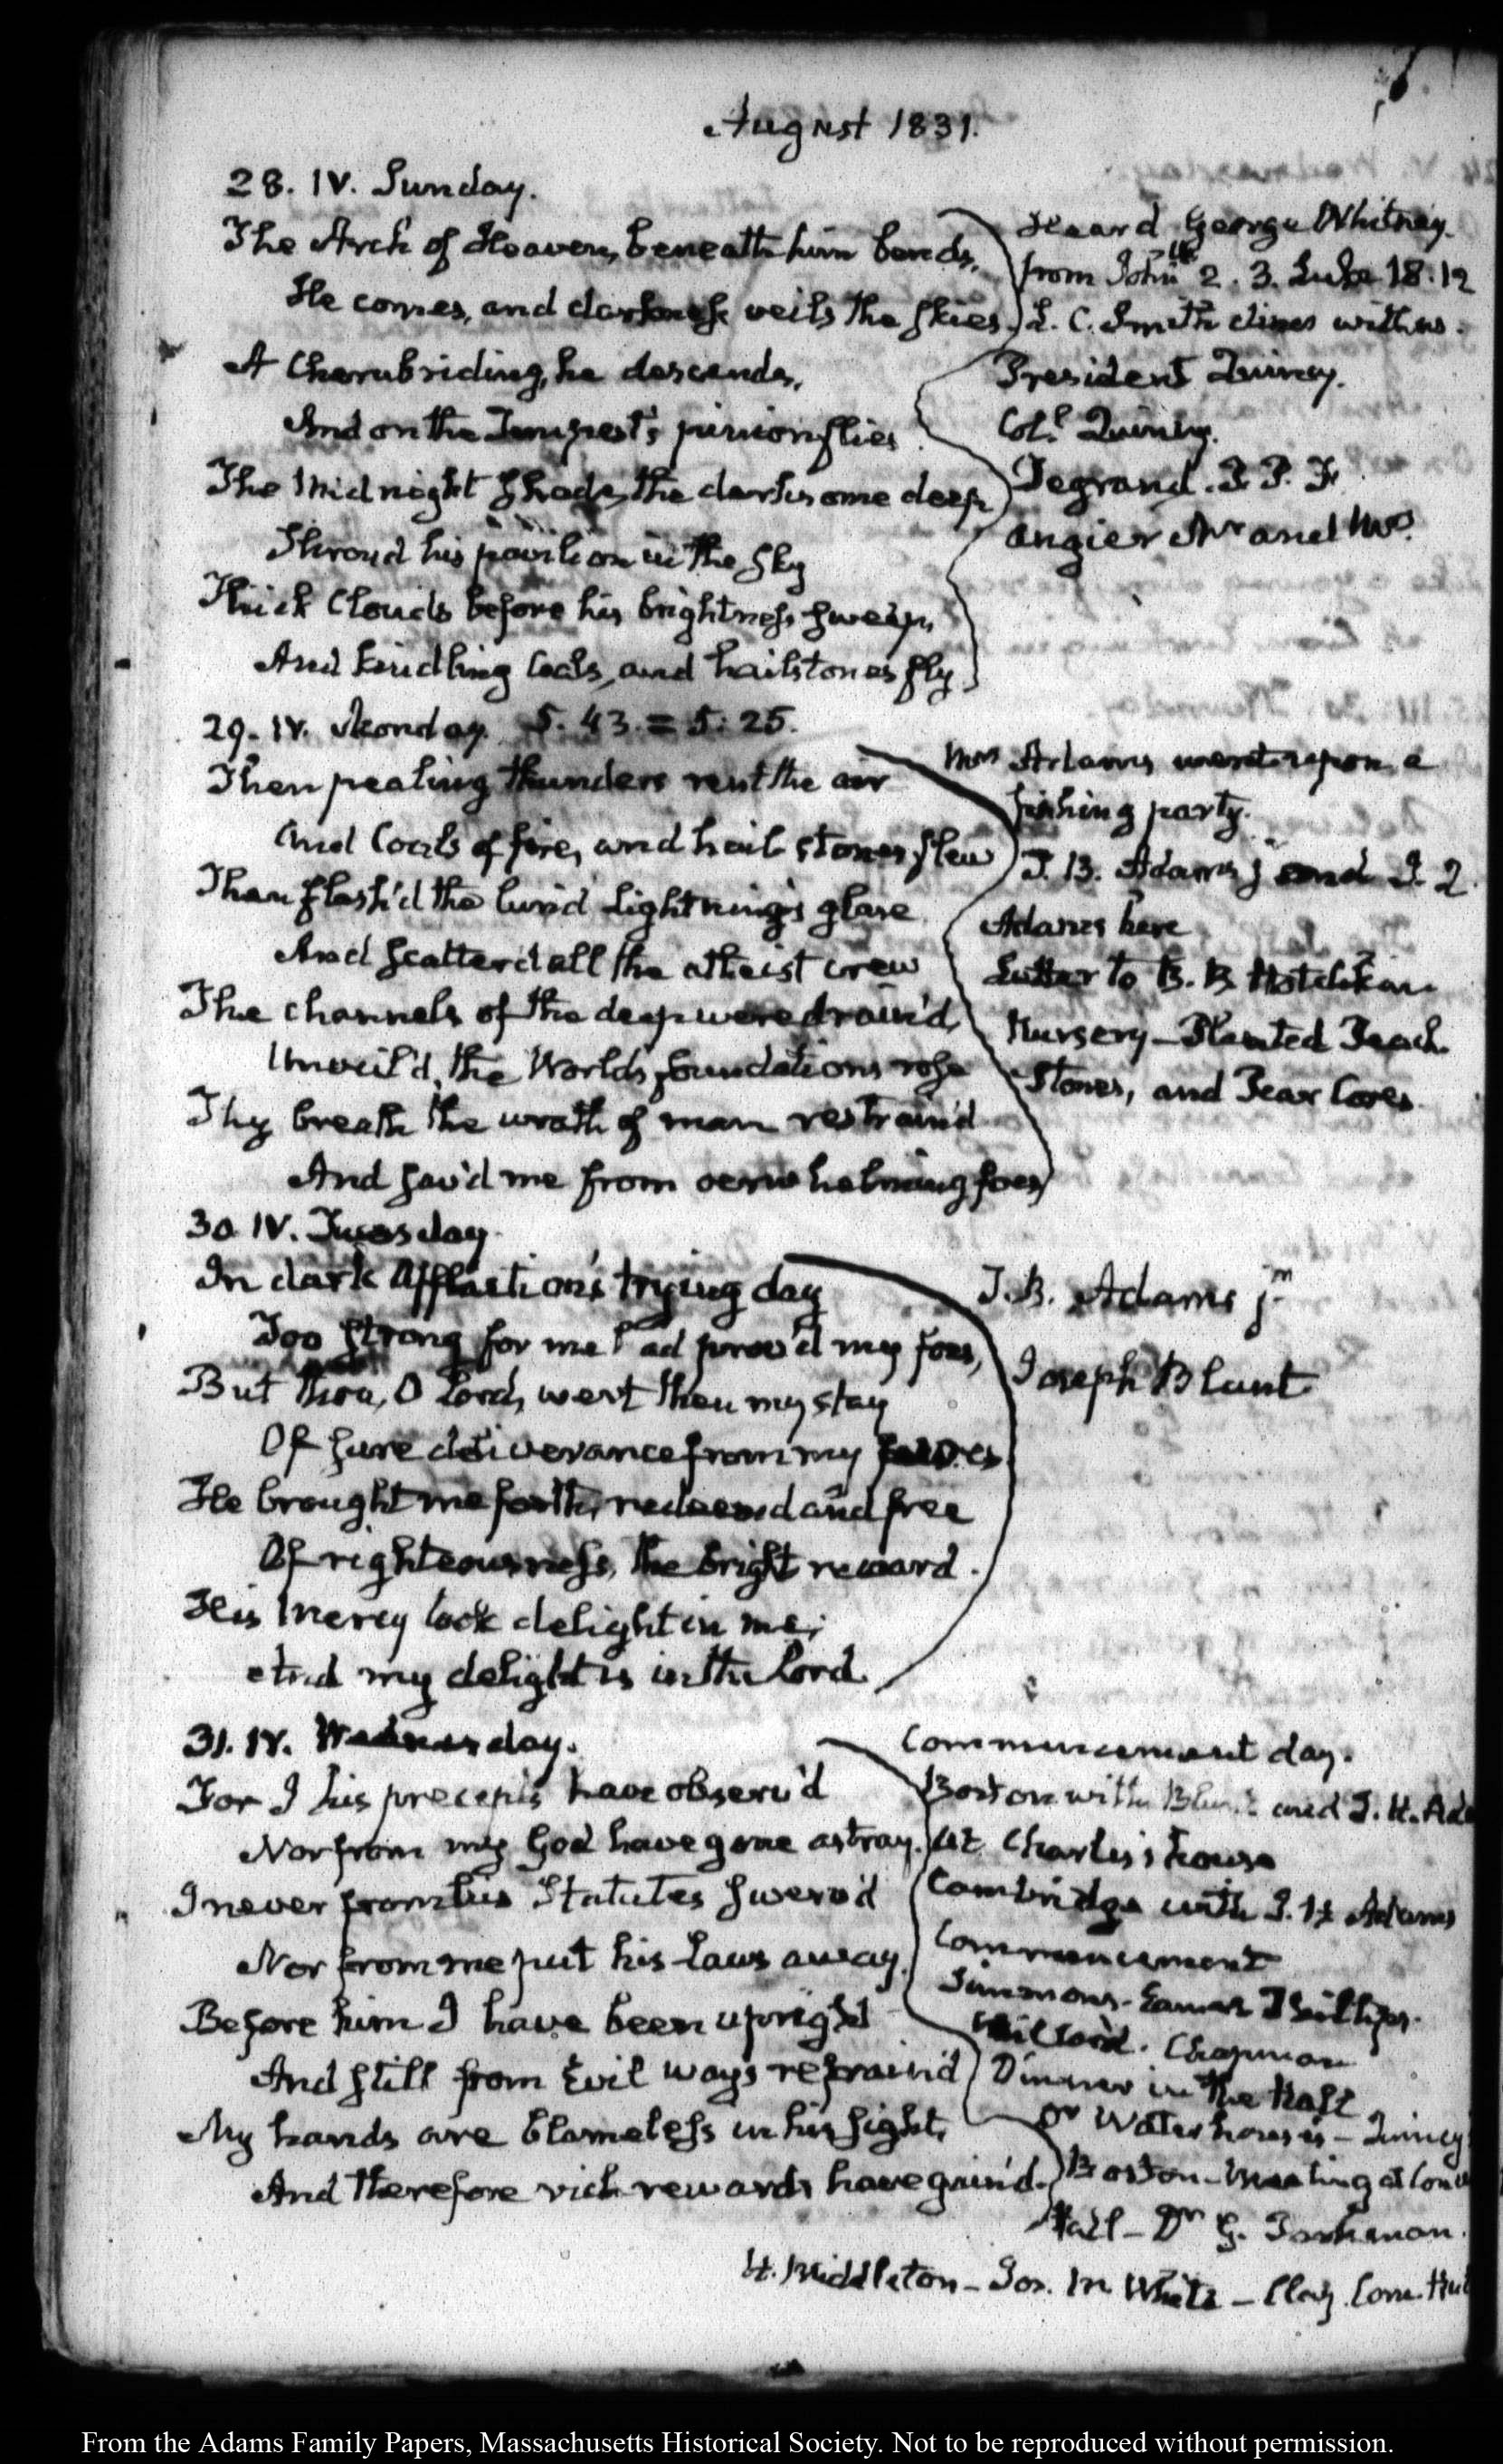 August 1831.
28. IV. Sunday.
The Arch of Heaven, beneath him bends,
He comes, and darkness veils the skies,
A Cherub riding, he descends,
And on the Tempest's pinion flies
The Midnight Shade, the darksome deep
Shroud his pavilion in the sky
Thick Clouds before his brightness sweep,
And kindling Coals, and hailstones fly
Heard George Whitney.
from John 2. 3. Luke 18. 12
L. C. Smith dines with us.
President Quincy.
Col.l Quincy.
Degrand. P. P. F.
Angier Mr and Mrs.
29. IV. Monday. 5. 43. = 5: 25.
Then pealing thunders rent the air
And Coals of fire, and hail stones flew
Then flash'd the lurid Lightning's glare
And scatter'd all the atheist crew
The channels of the deep were drain'd,
Unveil'd, the Worlds foundations rose
Thy breath the wrath of man restrain'd
And sav'd me from overwhelming foes
Mrs Adams went upon a
fishing party.
T. B. Adams jr and I. 2
Adams here
Letter to B. B. Hotchkin
Nursery — Planted Peach
Stones, and Pear Cores
30 IV. Tuesday.
In dark Affliction's trying day
Too strong for me had prov'd my foes,
But thou, O Lord, wert then my stay
Of sure deliverance from my
He brought me forth, redeem'd and free
Of righteousness, the bright reward.
His Mercy took delight in me;
And my delight is in the Lord
T. B. Adams jr
Joseph Blunt
31. IV. Wednesday.
For I his precepts have observ'd
Nor from my God have gone astray.
I never from his Statutes swerv'd
Nor from me put his Laws away.
Before him I have been upright
And still from Evil ways refrain'd
My hands are blameless in his sight,
And therefore rich rewards have gain'd.
Commencement day.
Boston with Blunt and I. H. Ada
At Charles's house
Cambridge with I. H. Adams
Commencement
Simmons. Eames Phillips.
Willard. Chapman
Dinner in the Hall
Dr Waterhouse's — Quincy
Boston — Meeting at Conc
Hall — Dr G. Parkman.
H. Middleton — Jos. M White — Clay. Com. Hul
From the Adams Family Papers, Massachusetts Historical Society. Not to be reproduced without permission.